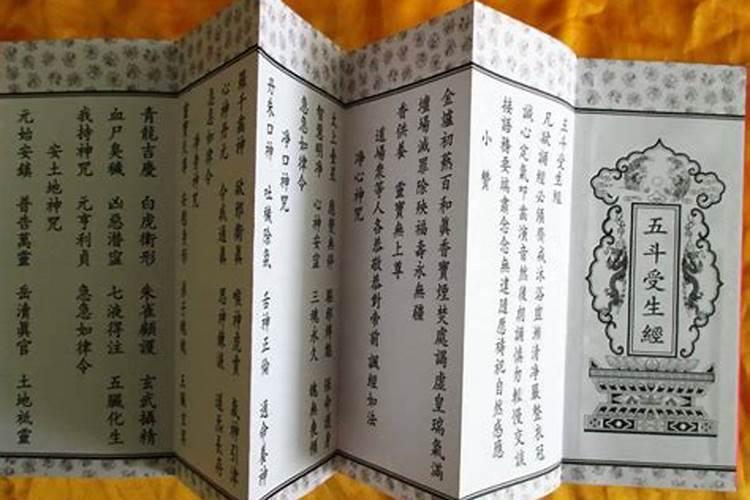 五斗受生經
五斗受生經
凡欲誦經必須齋戒沐浴盥漱清淨嚴整衣冠
誠心定氣叩齒演音然後朗誦慎勿輕慢交談
接語務要端肅念念無違隨應禱祀自然感應
小贊
金爐初爇百和眞香寶煙焚處謁虛皇瑞氣滿
壇場滅罪除殃福壽永無疆
香供養 靈寶無上尊
道場衆等人各恭敬恭對帝前 誦經如法
淨心神咒
太上台星 應變無停 驅邪縛魅 保命護身
智慧明淨 心神安寧 三魂永久 魄無喪傾
急急如律令
淨口神咒
丹朱口神 吐穢除氛 舌神正倫 通命養神
羅千齒神 卻邪衛眞 喉神虎賁 氣神引津
心神丹元 令我通眞 思神鍊液 道炁長存
急急如律令
淨身神咒
靈寶天尊 安慰身形 弟子魂魄 五臟玄冥
青龍吉慶 白虎衛形 朱雀顧護 玄武攝精
血尸臭穢 凶惡潛窰 七液得注 五臟化生
我持神咒 元亨利貞 急急如律令
安土地神咒
元始安鎮 普告萬靈 岳清眞官 土地祗靈